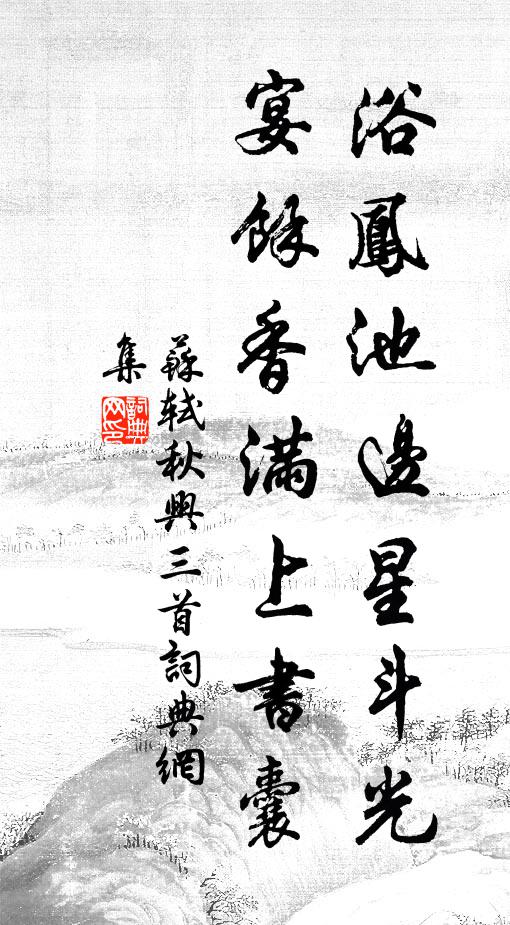 浴鳳池邊星斗光
宴餘香滿上書囊
蘇軾秋興三首詞典網
集
詞典網印